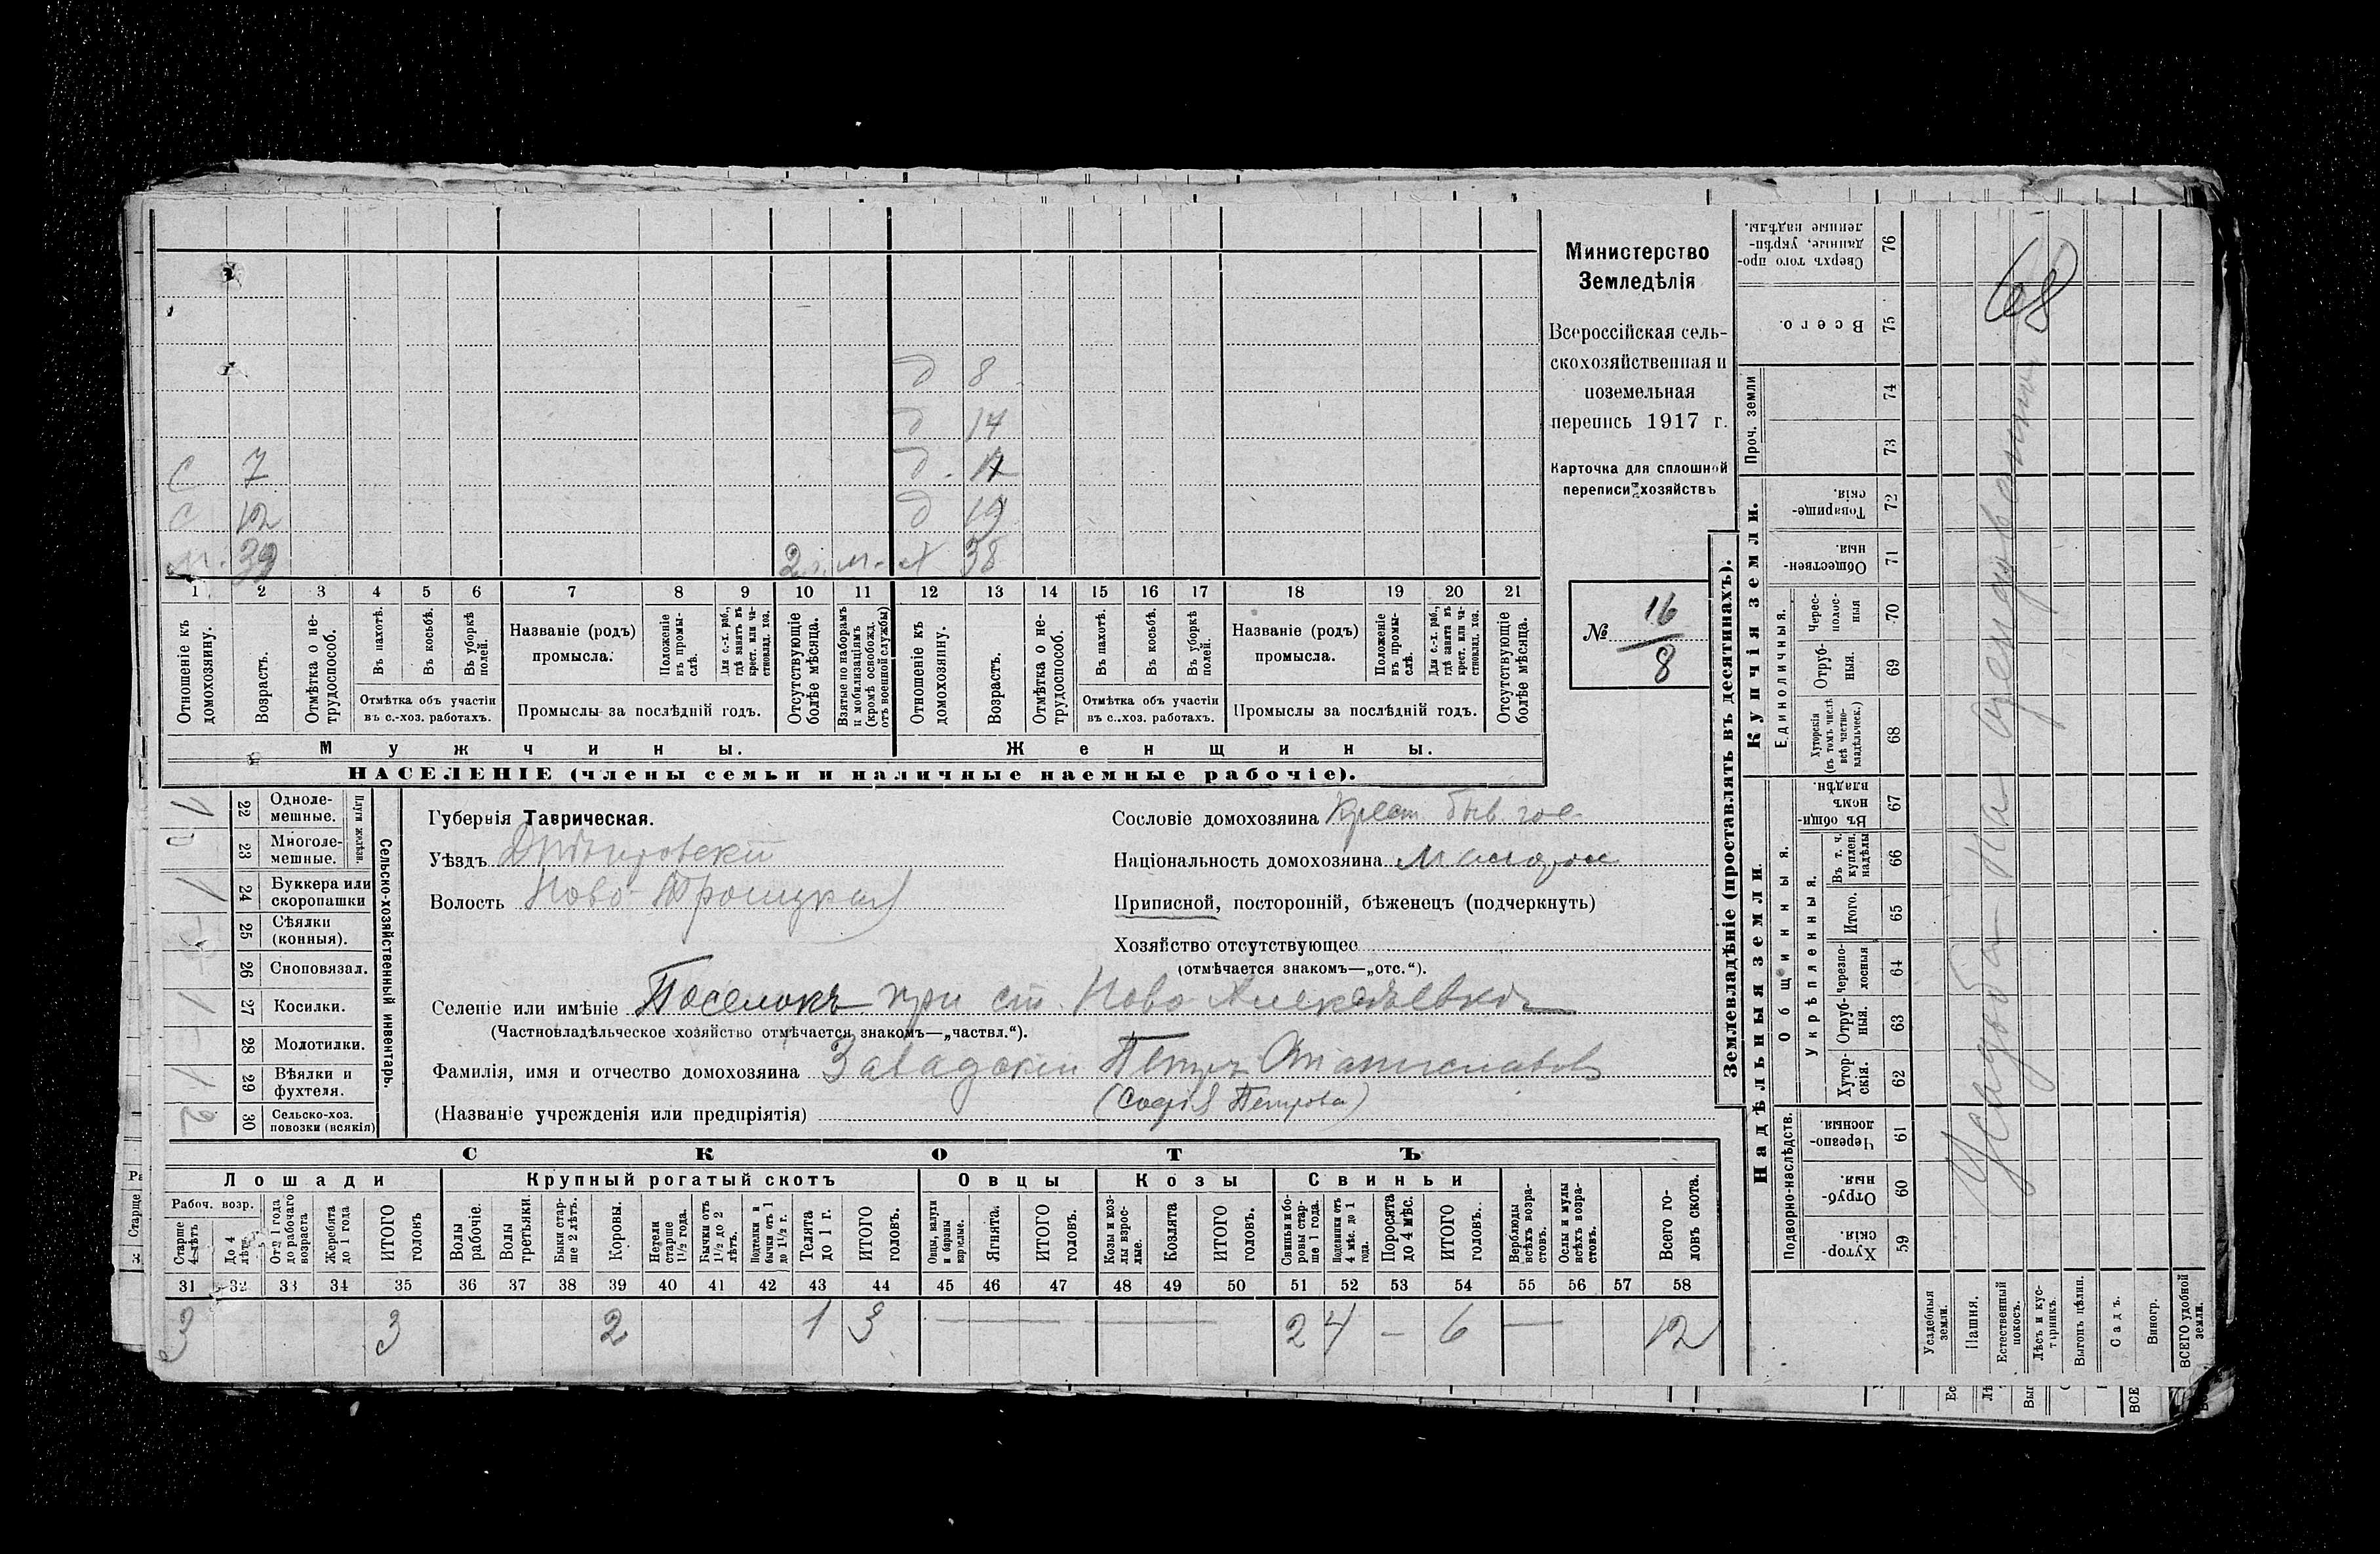 Министерство
Земледѣлія
Всероссійская сель-
скохозяйственная и
поземельная
перепись 1917 г.
Карточка для сплошной
переписи хозяйствъ
№ 16
8
д 8
д 14
с 7 д. 17
с 12 д 19
м. 39 2 г. м. ж 38
1 2 3 4 5 6 7 8 9 10 11 12 13 14 15 16 17 18 19 20 21
Отношеніе къ домохозяину.
Возрастъ.
Отмѣтка о не-трудоспособ.
Въ пахотѣ.
Въ косьбѣ.
Въ уборкѣ полей.
Отмѣтка объ участіи
въ с.-хоз. работахъ.
Названіе (родъ)
промысла.
Положеніе въ промы-слѣ.
Для с.-х. раб., гдѣ занятъ въ крест. или ча-стновлад. хоз.
Промыслы за послѣдній годъ.
Отсутствующіе болѣе мѣсяца.
Взятые по наборамъ и мобилизаціямъ (кромѣ освобожд. отъ военной службы)
Отношеніе къ домохозяину.
Возрастъ.
Отмѣтка о не-трудоспособ.
Въ пахотѣ.
Въ косьбѣ.
Въ уборкѣ полей.
Отмѣтка объ участіи
въ с.-хоз. работахъ.
Названіе (родъ)
промысла.
Положеніе въ промы-слѣ.
Для с.-х. раб., гдѣ занята въ крест. или ча-стновлад. хоз.
Промыслы за послѣдній годъ.
Отсутствующіе болѣе мѣсяца.
Мужчины. Женщины.
НАСЕЛЕНІЕ (члены семьи и наличные наемные рабочіе).
Сельско-хозяйственный инвентарь.
Плуги желѣзн.
1 22 Одноле-мешные.
23 Многоле-мешные.
1 24 Буккера или скоропашки
25 Сѣялки (конныя).
26 Сноповязал.
1 27 Косилки.
28 Молотилки.
1 29 Вѣялки и фухтеля.
2 30 Сельско-хоз. повозки (всякія)
Губернія Таврическая.
Уѣздъ Днѣпровскій
Волость Ново-Троицкая
Сословіе домохозяина Крест. быв. гос.
Національность домохозяина малорос
Приписной, посторонній, бѣженецъ (подчеркнуть)
Хозяйство отсутствующее
(отмѣчается знакомъ—„отс.“).
Селеніе или имѣніе Поселокъ при ст. Ново Алексѣевкѣ
(Частновладѣльческое хозяйство отмѣчается знакомъ—„частвл.“).
Фамилія, имя и отчество домохозяина Завадскій Петръ Станиславов
(Названіе учрежденія или предпріятія) (Софія Петрова)
СКОТЪ
Лошади Крупный рогатый скотъ Овцы Козы Свиньи
Рабоч. возр.
Старше 4-лѣтъ
До 4 лѣтъ
Отъ 1 года до рабочаго возраста
Жеребята до 1 года
ИТОГО головъ
Волы рабочіе.
Волы третьяки.
Быки стар-ше 2 лѣтъ.
Коровы.
Нетели старше 1½ года.
Бычки отъ 1½ до 2 лѣтъ.
Подтелки и бычки отъ 1 до 1½ г.
Телята до 1 г.
ИТОГО головъ.
Овцы, валухи и бараны взрослые.
Ягнята.
ИТОГО головъ.
Козы и коз-лы взрос-лые.
Козлята
ИТОГО головъ.
Свиньи и бо-ровы стар-ше 1 года.
Подсвинки отъ 4 мѣс. до 1 года.
Поросята до 4 мѣс.
ИТОГО головъ.
Верблюды всѣхъ возра-стовъ.
Ослы и мулы всѣхъ возра-стовъ.
Всего го-ловъ скота.
31 32 33 34 35 36 37 38 39 40 41 42 43 44 45 46 47 48 49 50 51 52 53 54 55 56 57 58
3 3 2 1 3 — — 2 4 — 6 — 12
Землевладѣніе (проставлять въ десятинахъ).
Надѣльныя земли. Купчія земли.
Проч. земли
Подворно-наслѣдств.
Общинныя.
Укрѣпленныя.
Единоличныя.
Хутор-скія. 59
Отруб-ныя. 60
Черезпо-лосныя. 61
Хутор-скія. 62
Отруб-ныя. 63
Черезпо-лосныя 64
Итого. 65
Въ т. ч. куплен. надѣлы 66
Въ общи-номъ владѣн. 67
Хуторскія (въ томъ числѣ всѣ частно-владѣльческ.) 68
Отруб-ныя. 69
Черес-полос-ныя 70
Обществен-ныя. 71
Товарище-скія. 72
73
74
Всего. 75
Сверхъ того про-данные, укрѣп-ленные надѣлы. 76
Усадебныя земли.
Пашня.
Естественный покосъ.
Лѣсъ и кус-тарникъ.
Выгонъ цѣлин.
Садъ.
Виногр.
ВСЕГО удобной земли.
Усадьба на
68